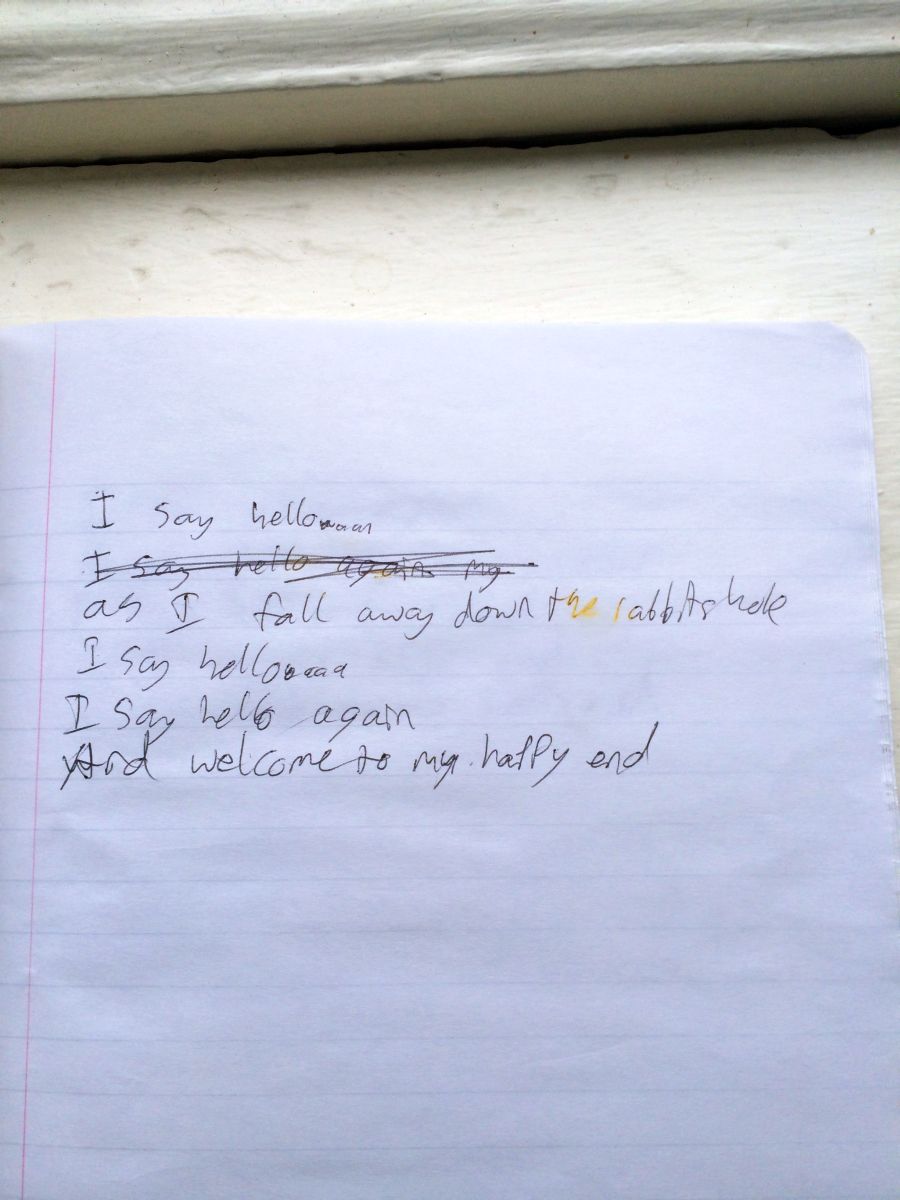 I say helloaaaa
I say hello again my
as I fall away down the rabbits hole
I say helloaaaa
I say hello again
And welcome to my happy end